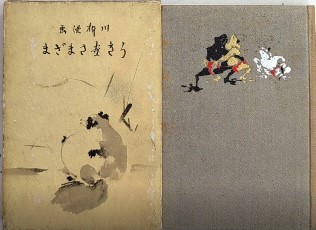 川柳漫画
うき世さまざま